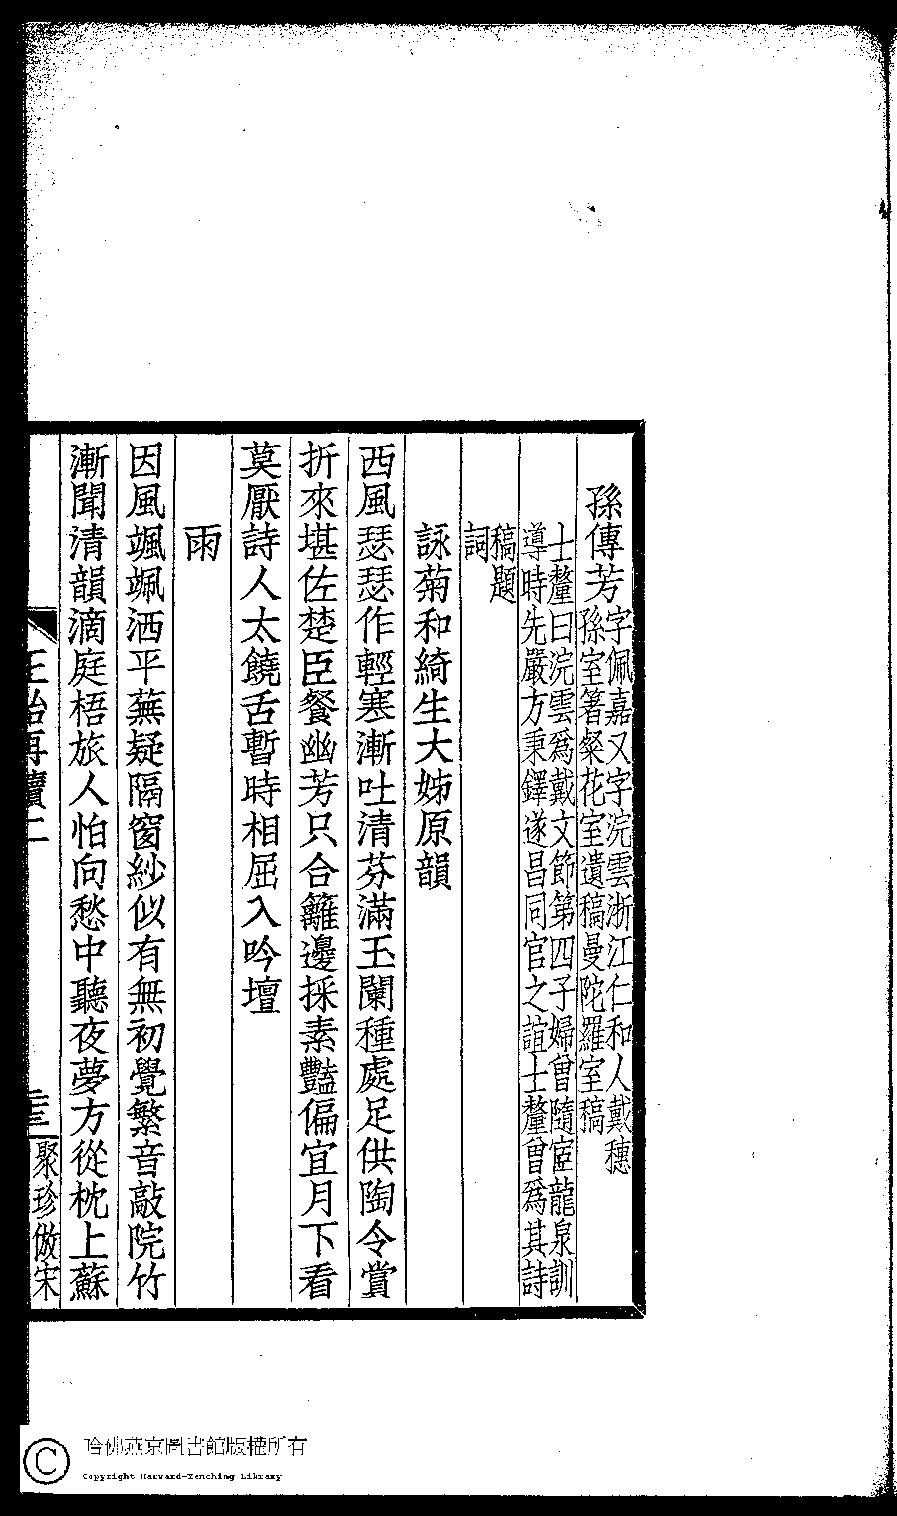 孫傳芳
字佩嘉又字浣雲浙江仁和人戴穗
孫室箸粲花室遺稿曼陀羅室稿
士釐曰浣雲爲戴文節第四子婦曾隨宦龍泉訓
導時先嚴方秉鐸遂昌同官之誼士釐曾爲其詩
稿題
詞
詠菊和綺生大姊原韻
西風瑟瑟作輕寒漸吐清芬滿玉闌種處足供陶令賞
折來堪佐楚臣餐幽芳只合籬邊採素豔偏宜月下看
莫厭詩人太饒舌暫時相屈入吟壇
雨
因風颯颯洒平蕪疑隔窗紗似有無初覺繁音敲院竹
漸聞清韻滴庭梧旅人怕向愁中聽夜夢方從枕上蘇
再續二
聚珍倣宋
哈佛燕京圖書館版權所有
Copyright Harvard-Yenching Library